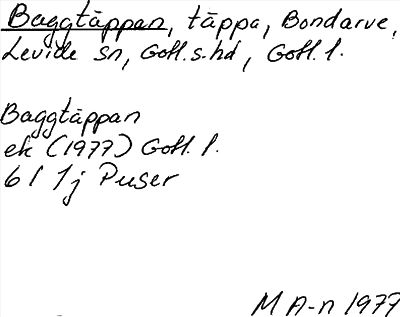 Baggtäppan, täppa, Bondarve,
Levide sn, Gotl. s. hd, Gotl. l.
Baggtäppan
ek (1977) Gotl. l.
6 I 1j Puser
M A-n 1977